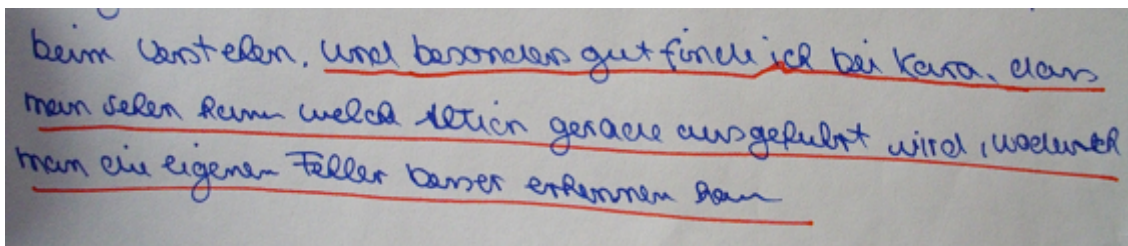 beim Verstehen. Und besonders gut finde ich bei Kara, dass
man sehen kann welche Aktion gerade ausgeführt wird, wodurch
man die eigenen Fehler besser erkennen kann